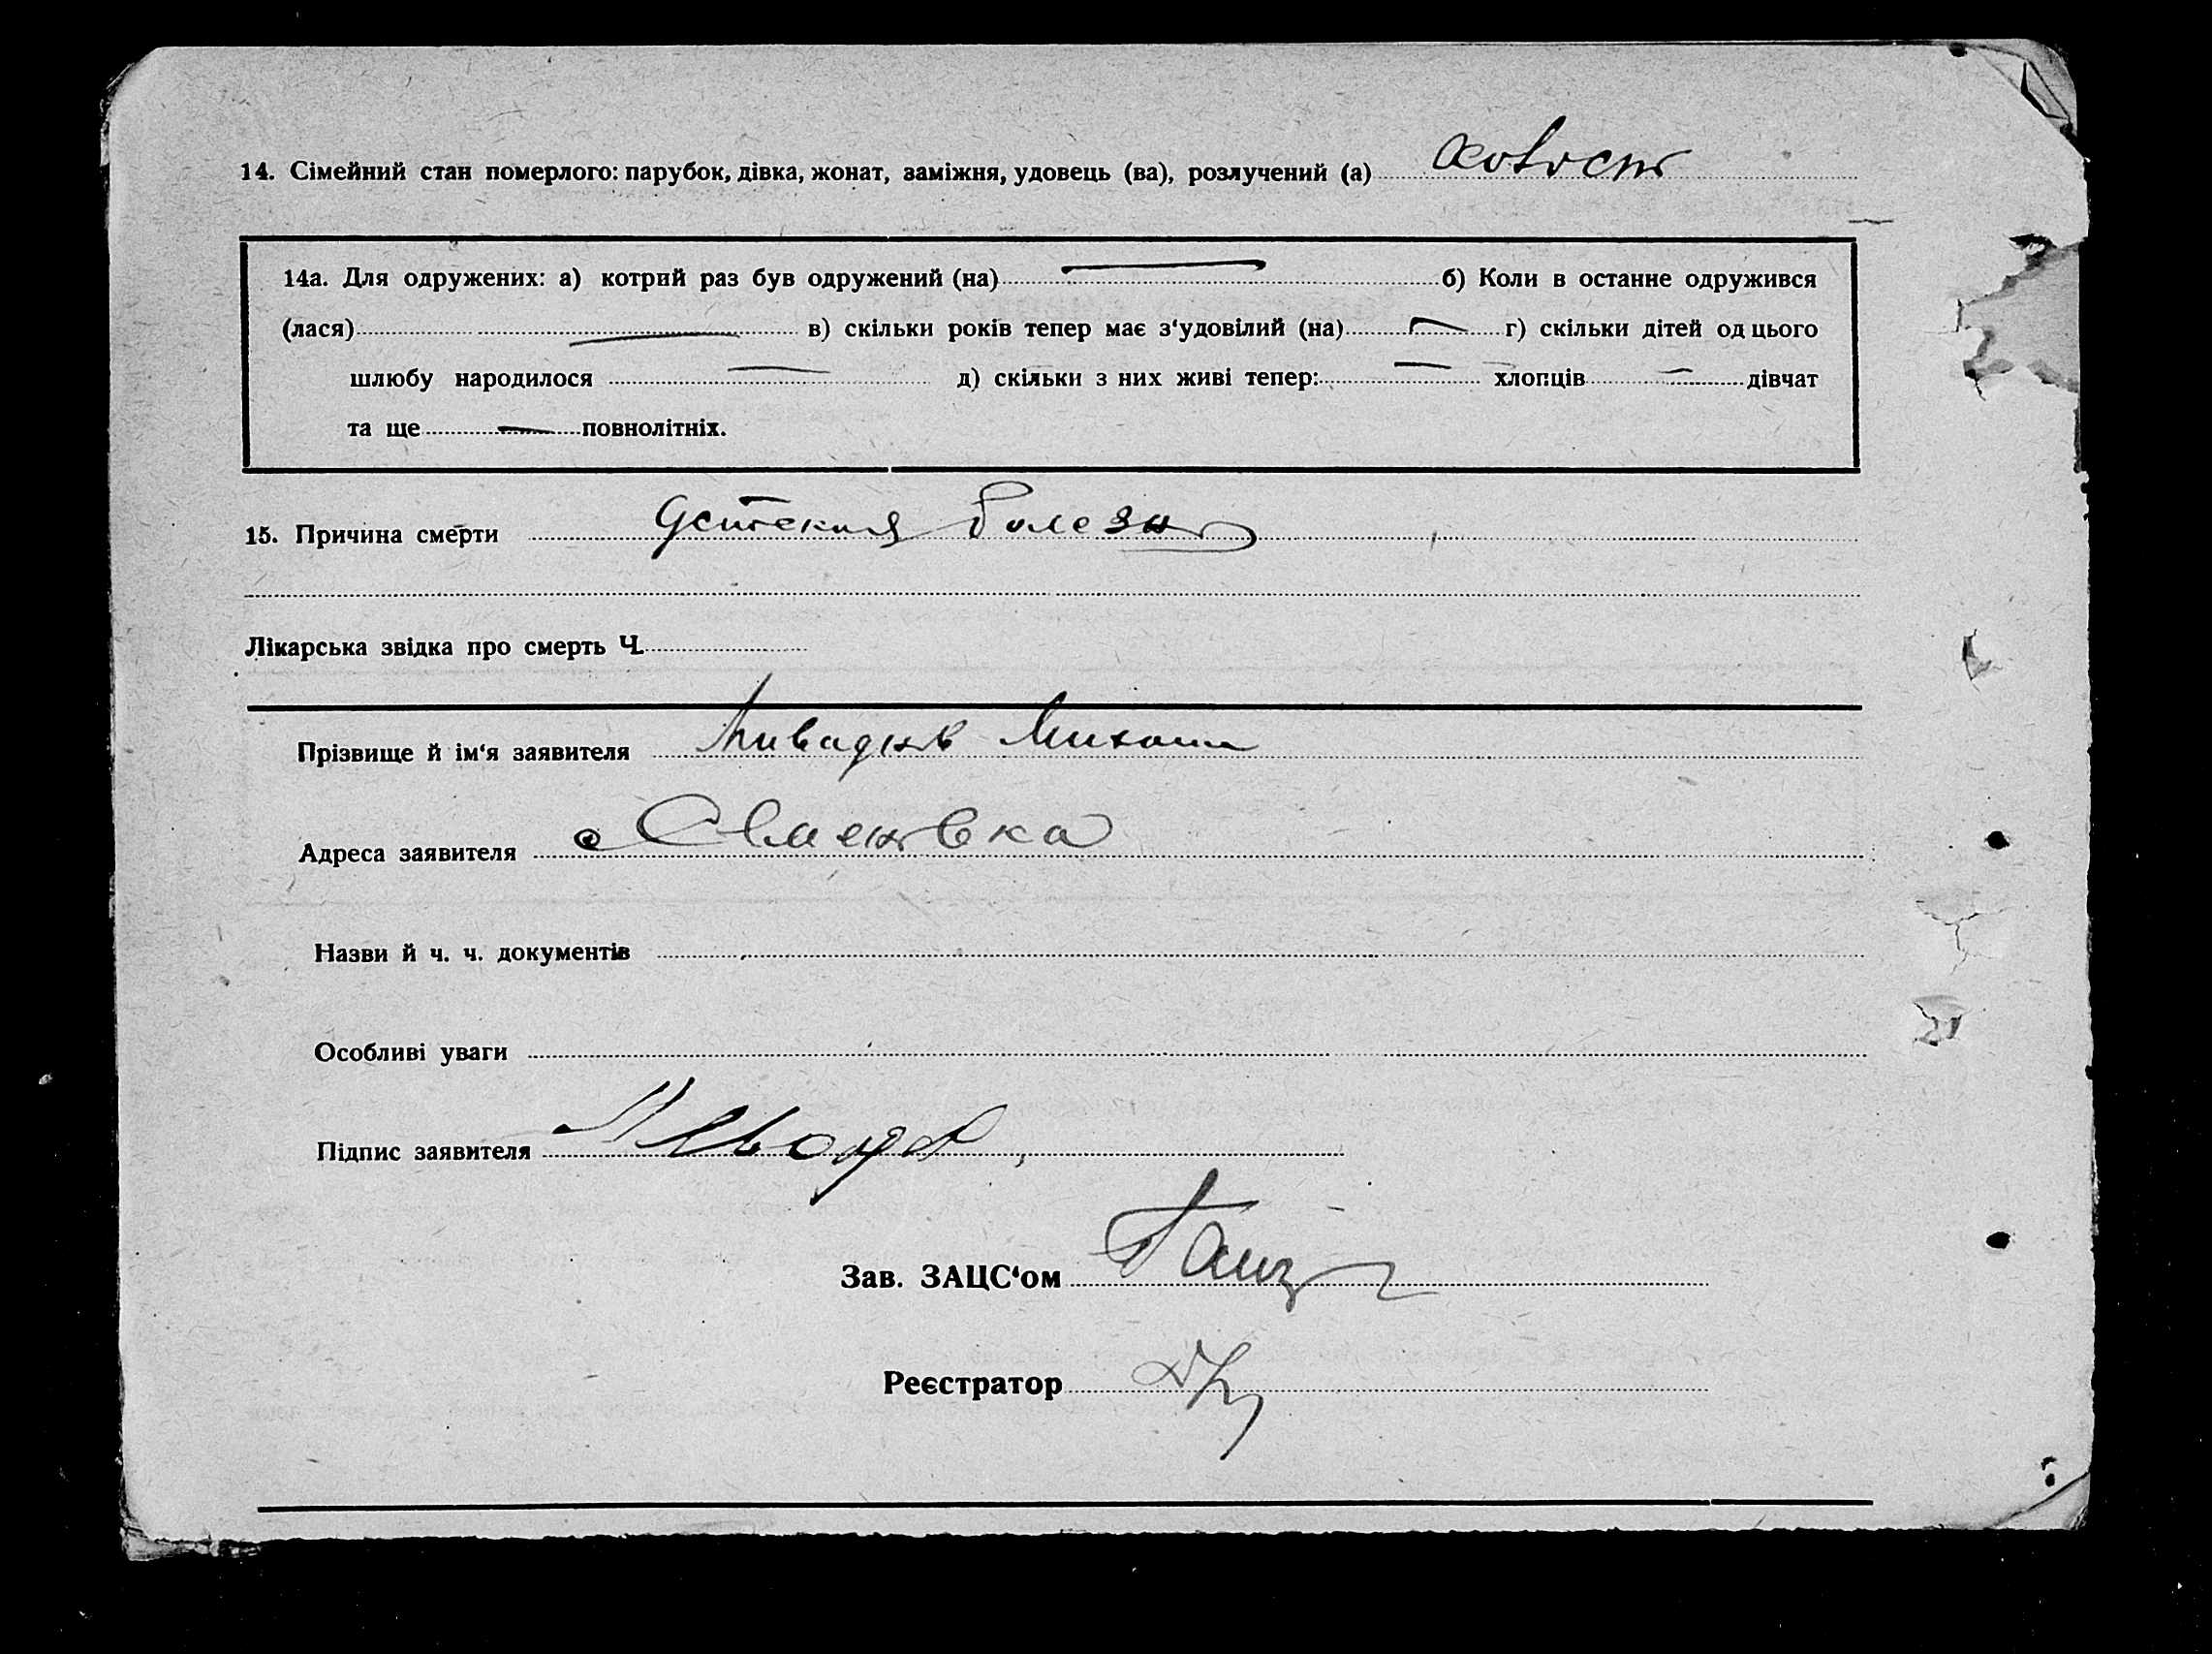 14. Сімейний стан померлого: парубок, дівка, жонат, заміжня, удовець (ва), розлучений (а) холост
14а. Для одружених: а) котрий раз був одружений (на) — б) Коли в останнє одружився
(лася) — в) скільки років тепер має з‘удовілий (на) — г) скільки дітей од цього
шлюбу народилося — д) скільки з них живі тепер: — хлопців — дівчат
та ще — повнолітніх.
15. Причина смерти Детская болезнь
Лікарська звідка про смерть Ч.
Прізвище й ім‘я заявителя Михаил
Адреса заявителя с Семеновка
Назви й ч. ч. документів
Особливі уваги
Підпис заявителя
Зав. ЗАЦС‘ом
Реєстратор